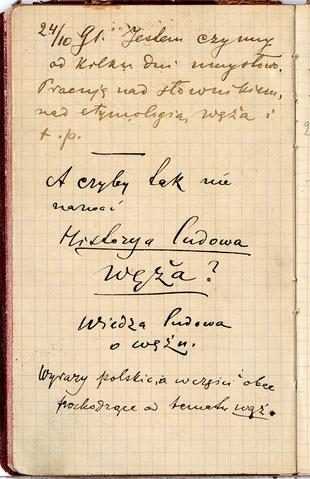 24/10 91. Jestem czynny
od kilku dni umysłowo.
Pracuję nad słownikiem,
nad etymologią węża i
t. p.
A czyby tak nie
nazwać
Historya ludowa
węża?
Wiedza ludowa
o wężu.
Wyrazy polskie, a w części obce
pochodzące od tematu wąż.